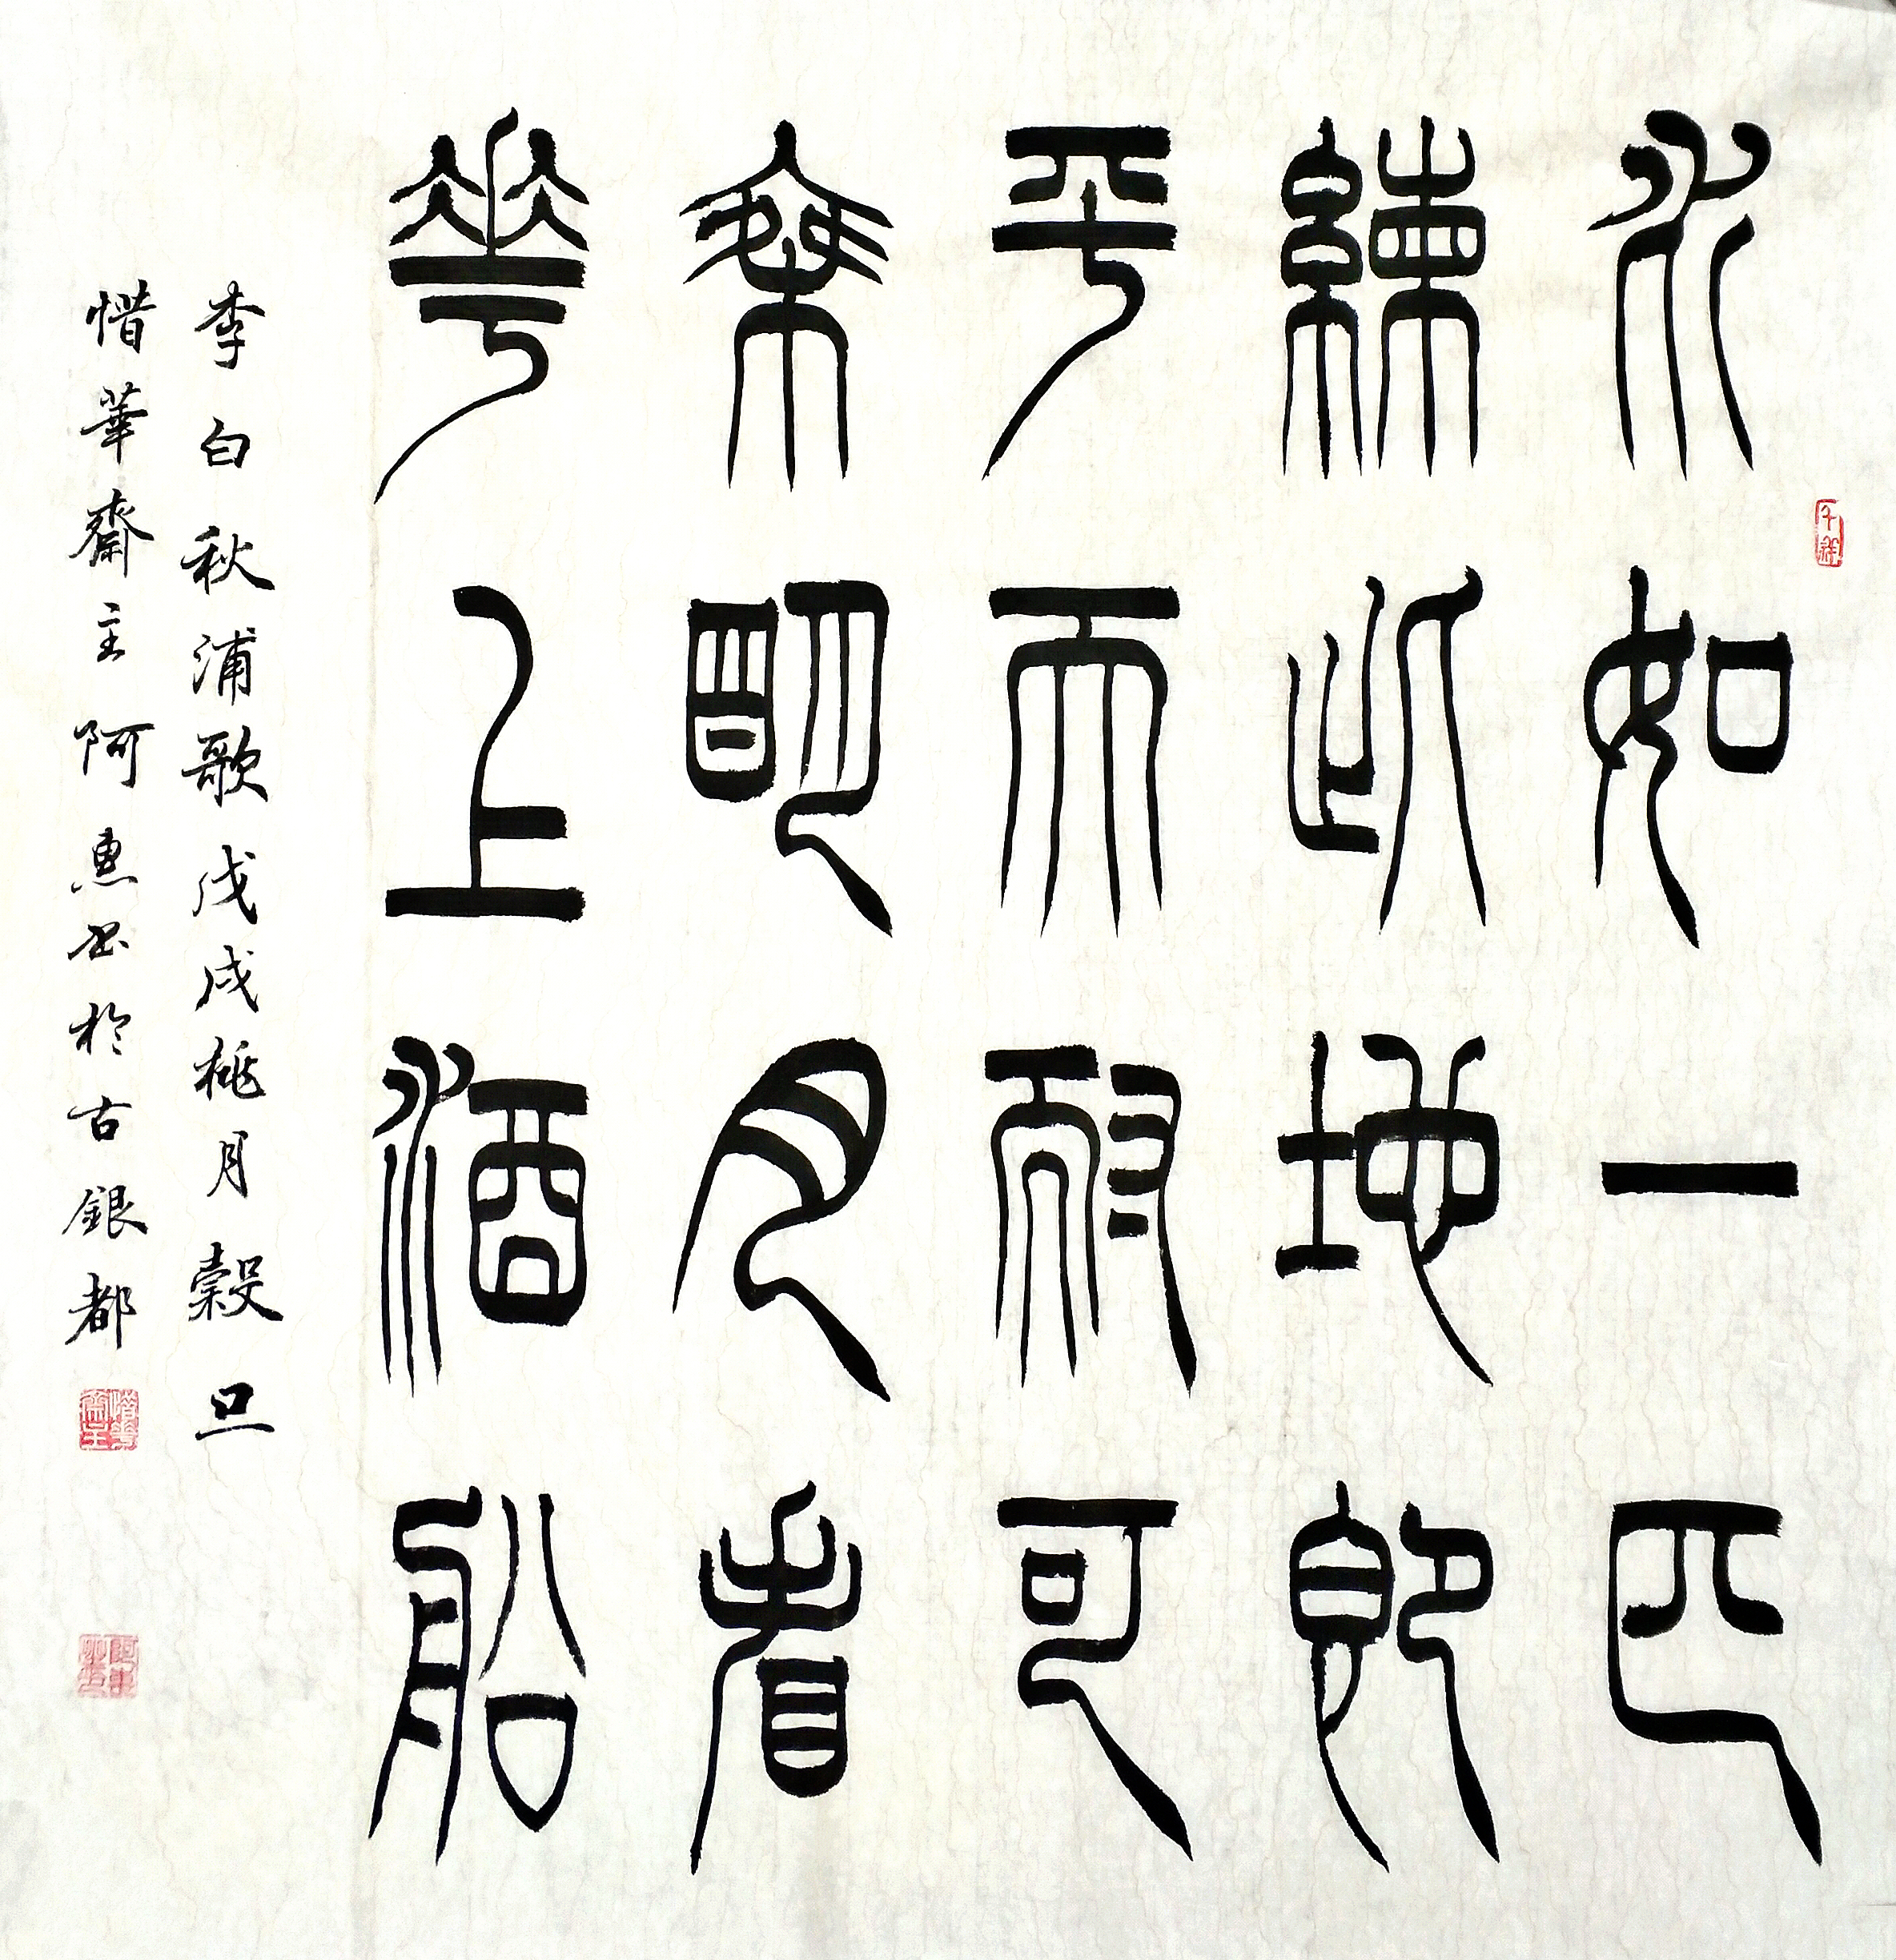 水如一匹
練此地即
平天耐可
乘明月看
華上酒船
李白秋浦歌戊戌桃月穀旦
惜華齋主阿惠书於古銀都
惜華齋主